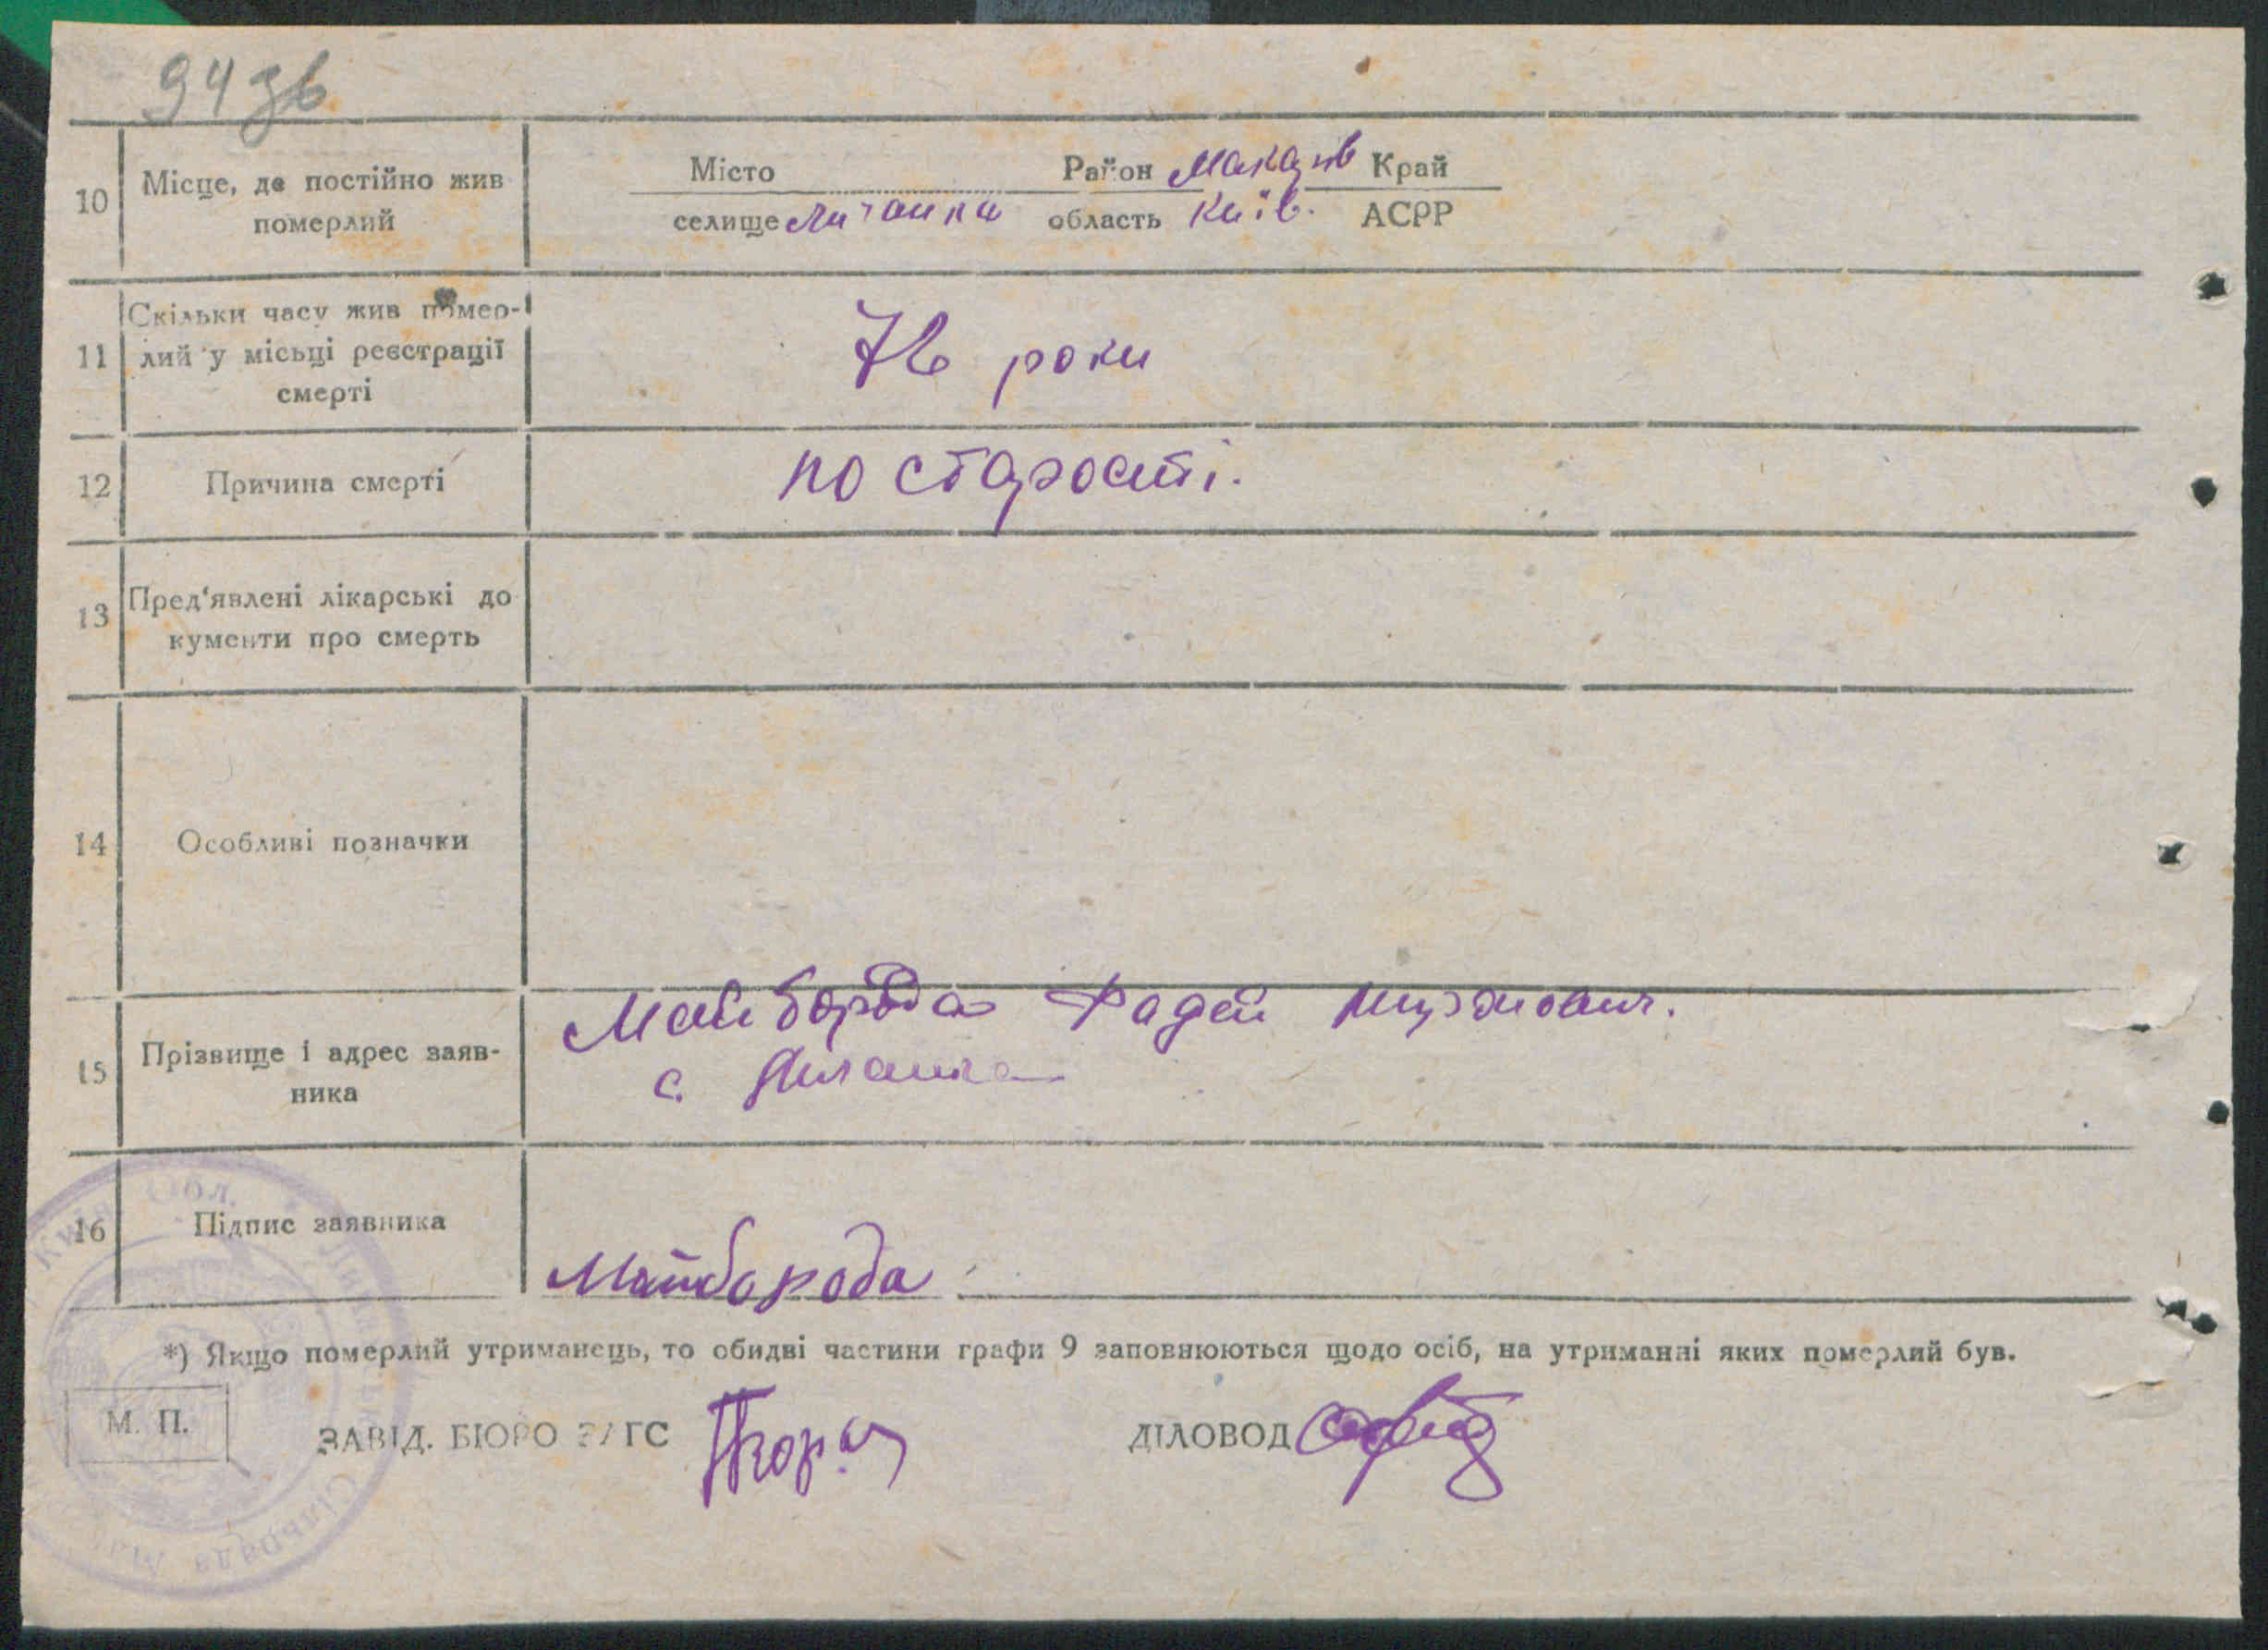 94 зв
Місто Район Макарів Край
10 Місце, де постійно жив
померлий
селище Личанка область Київ. АСРР
Скільки часу жив помер-
11 лий у місьці реєстрації
смерті
76 роки
12 Причина смерті по старості.
13 Пред'явлені лікарські до
кументи про смерть
14 Особливі позначки
Майборода Фадей
15 Прізвище і адрес заяв-
ника
с. Личанка
16 Підпис заявника
Майборода
*) Якщо померлий утриманець, то обидві частини графи 9 заповнюються щодо осіб, на утриманні яких померлий був.
М. П. ЗАВІД. БЮРО ЗАГС ДІЛОВОД
Київ Обл.
Сільрада